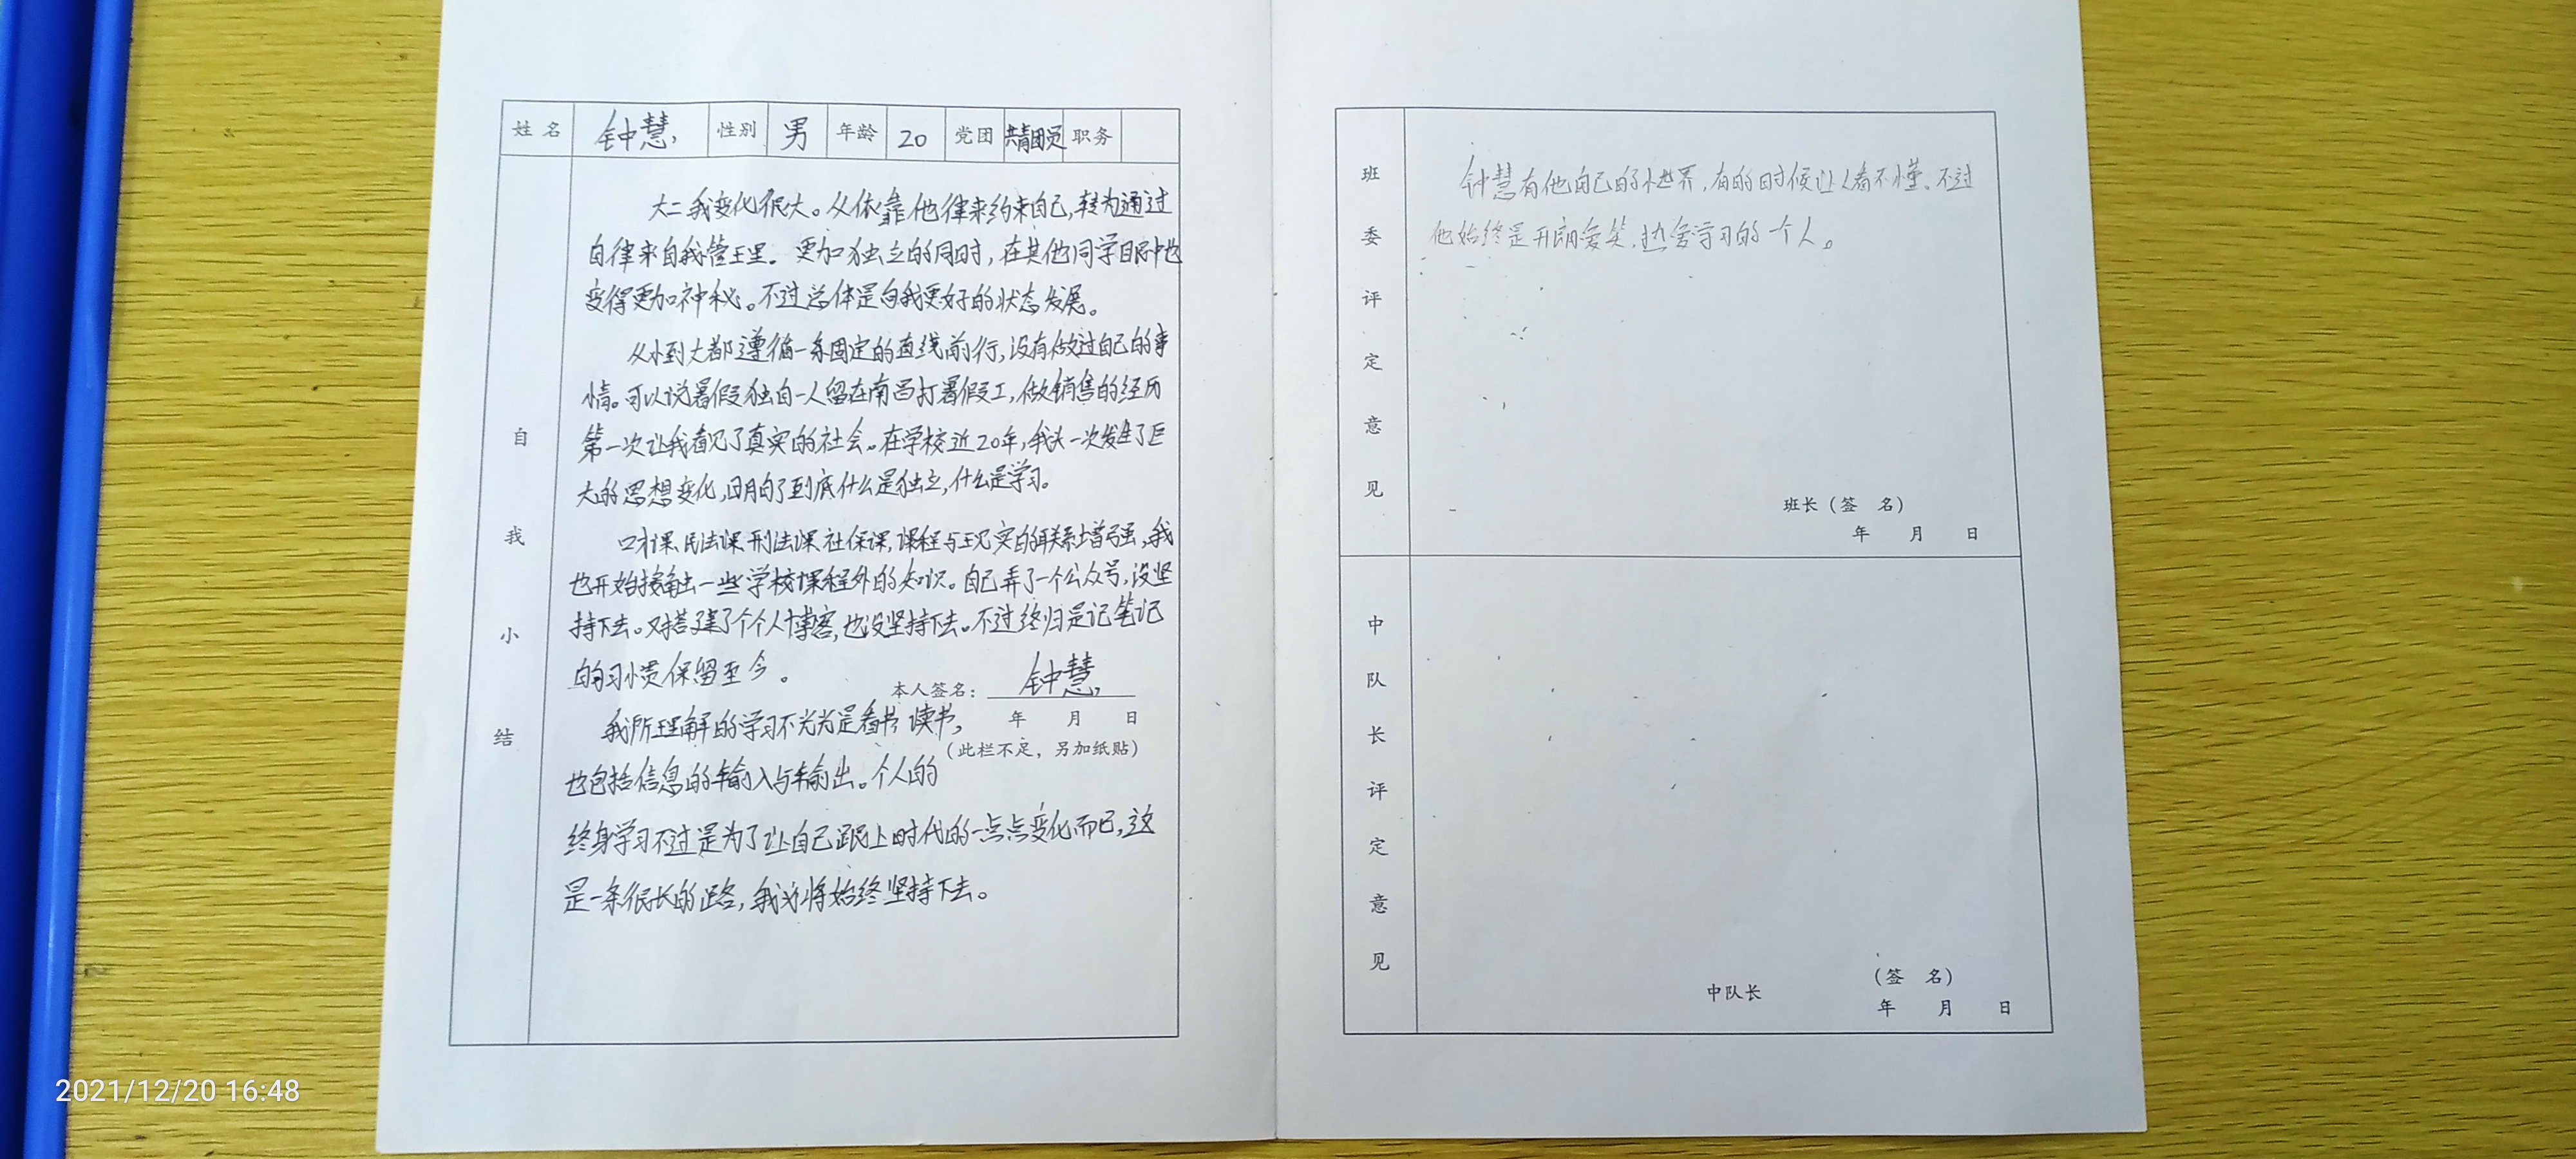 姓名 钟慧 性别 男 年龄 20 党团 共青团员 职务
自我小结
大二我变化很大。从依靠他律来约束自己,转为通过
自律来自我管理。更加独立的同时,在其他同学眼中也
变得更加神秘。不过总体是向我更好的状态发展。
从小到大都遵循一条固定的直线前行,没有做过自己的事
情。可以说暑假独自一人留在南昌打暑假工,做销售的经历
第一次让我看见了真实的社会。在学校近20年,我头一次发生了巨
大的思想变化,明白了到底什么是独立,什么是学习。
口才课、民法课、刑法课、社保课,课程与现实的联系增强,我
也开始接触出一些学校课程外的知识。自己弄了一个公众号,没坚
持下去。又搭建了个个人博客,也没坚持下去。不过终归是记笔记
的习惯保留至今。
本人签名: 钟慧
年 月 日
(此栏不足,另加纸贴)
我所理解的学习不光光是看书 读书,
也包括信息的输入与输出。个人的
终身学习不过是为了让自己跟上时代的一点点变化而已,这
是一条很长的路,我必将始终坚持下去。
班委评定意见
钟慧有他自己的小世界,有的时候让人看不懂,不过
他始终是开朗爱笑,热爱学习的一个人。
班长(签 名)
年 月 日
中队长评定意见
中队长 (签 名)
年 月 日
2021/12/20 16:48